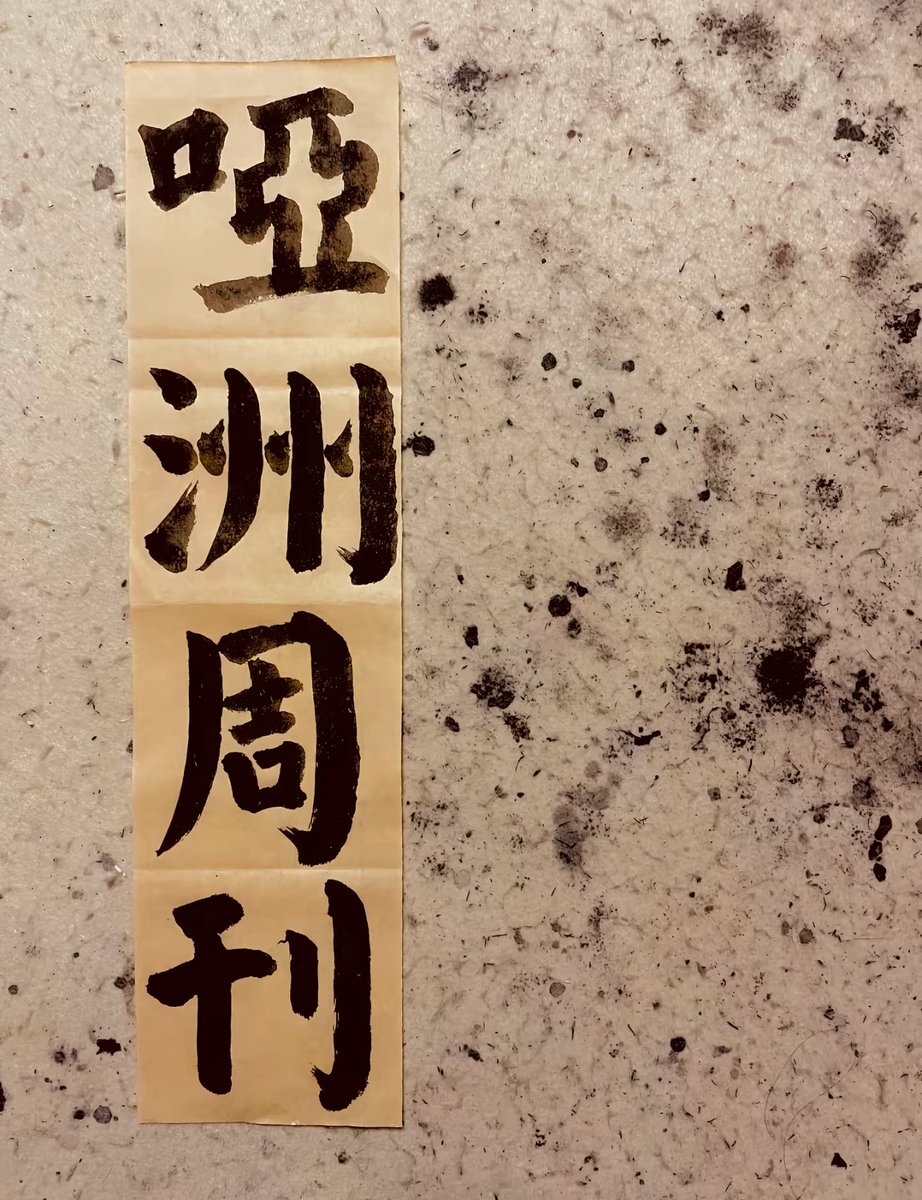 啞洲周刊